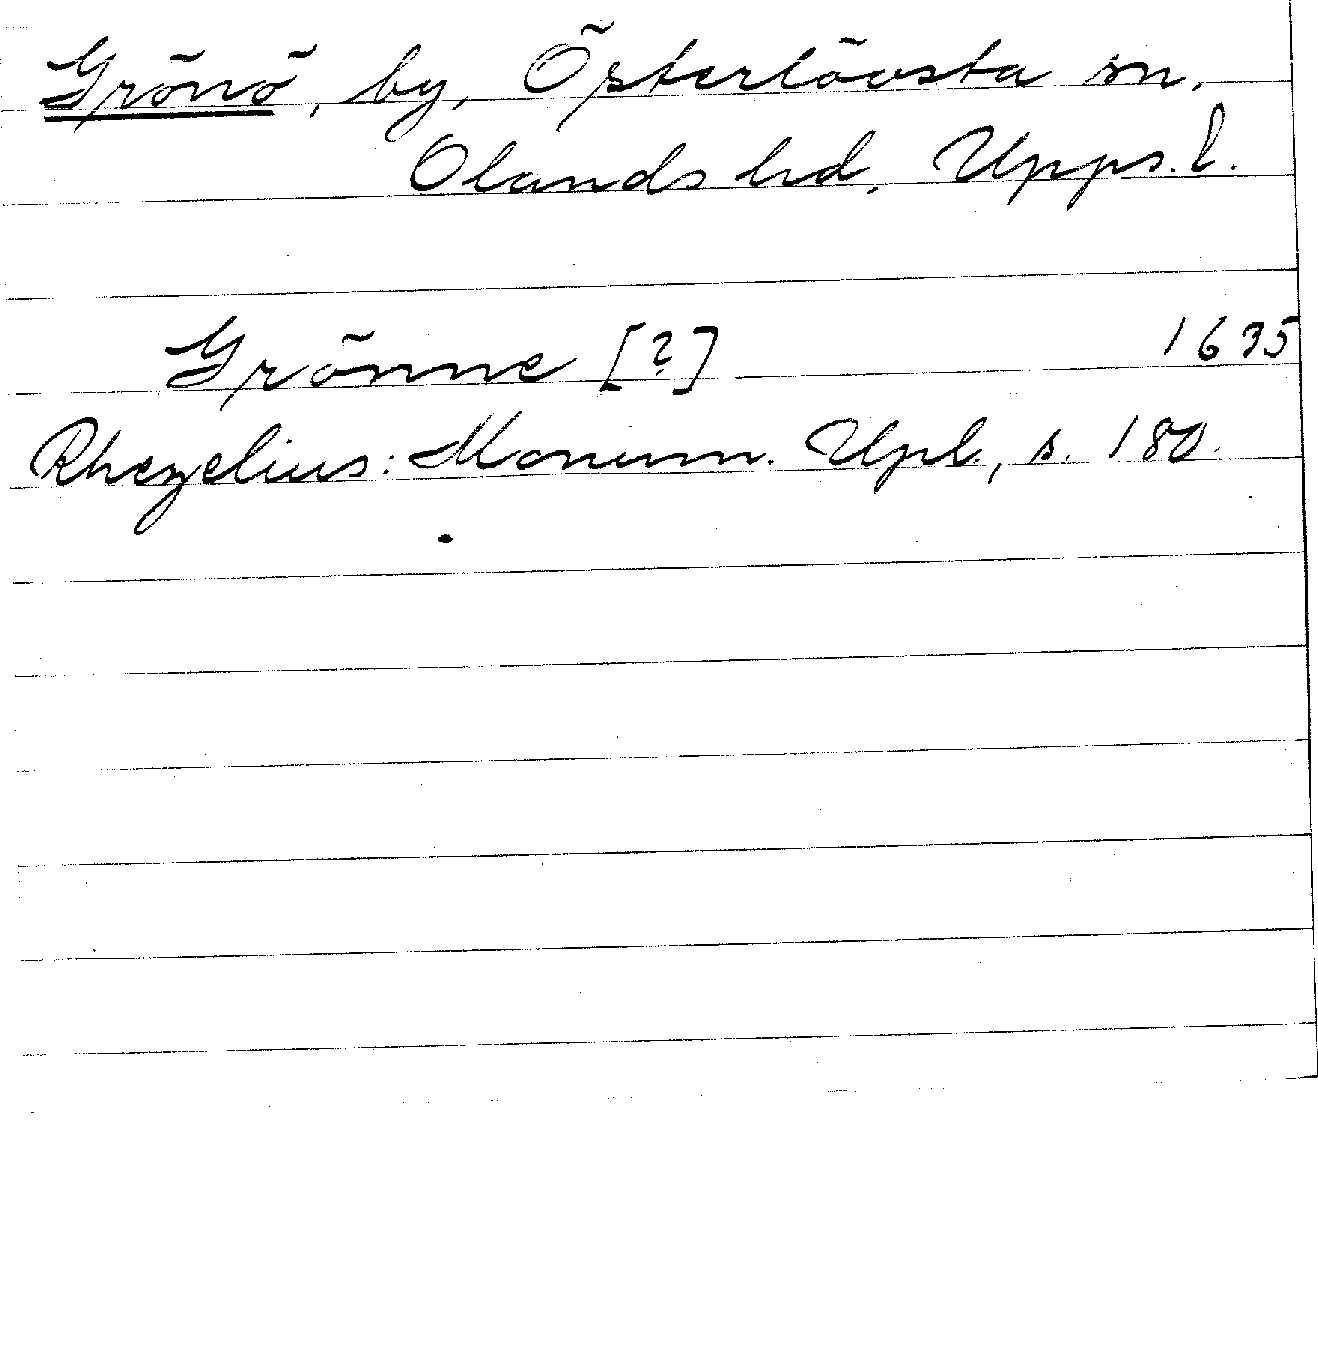 Grönö, by, Österlövsta sn,
Olands hd, Upps. l.
Grönne [?] 1635
Rhezelius: Monum. Upl., s. 180.